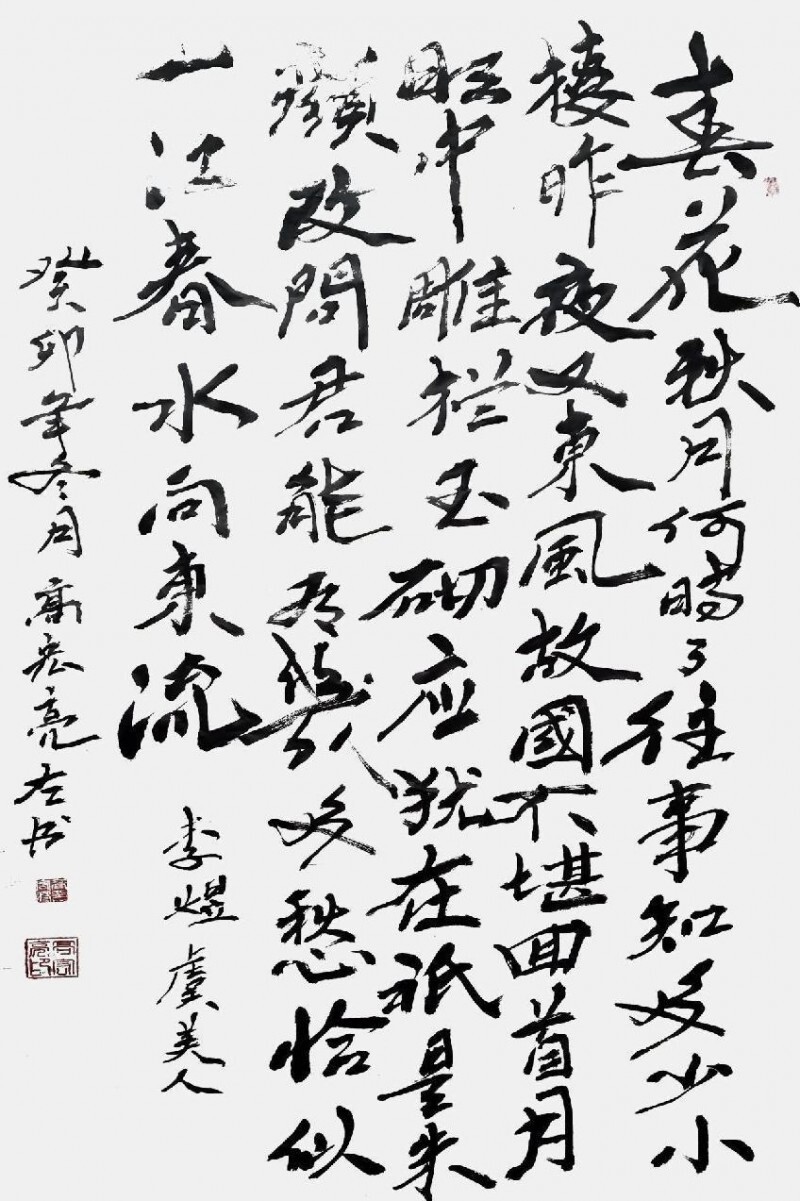 春花秋月何時了往事知多少小
樓昨夜又東風故國不堪回首月
明中雕栏玉砌应犹在祇是朱
顏改問君能有幾多愁恰似
一江春水向東流
李煜虞美人
癸卯年冬月高宏亮左书
高宏亮印